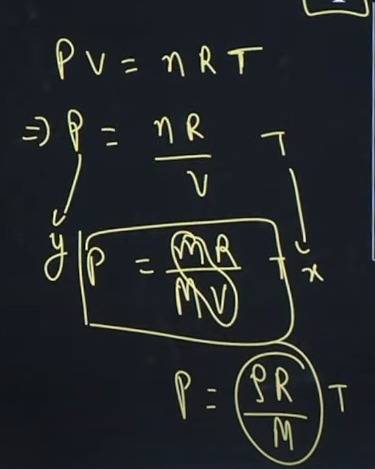 PV = nRT
⇒ P = nR/V T
y P = mR/MV T x
P = ρR/M T